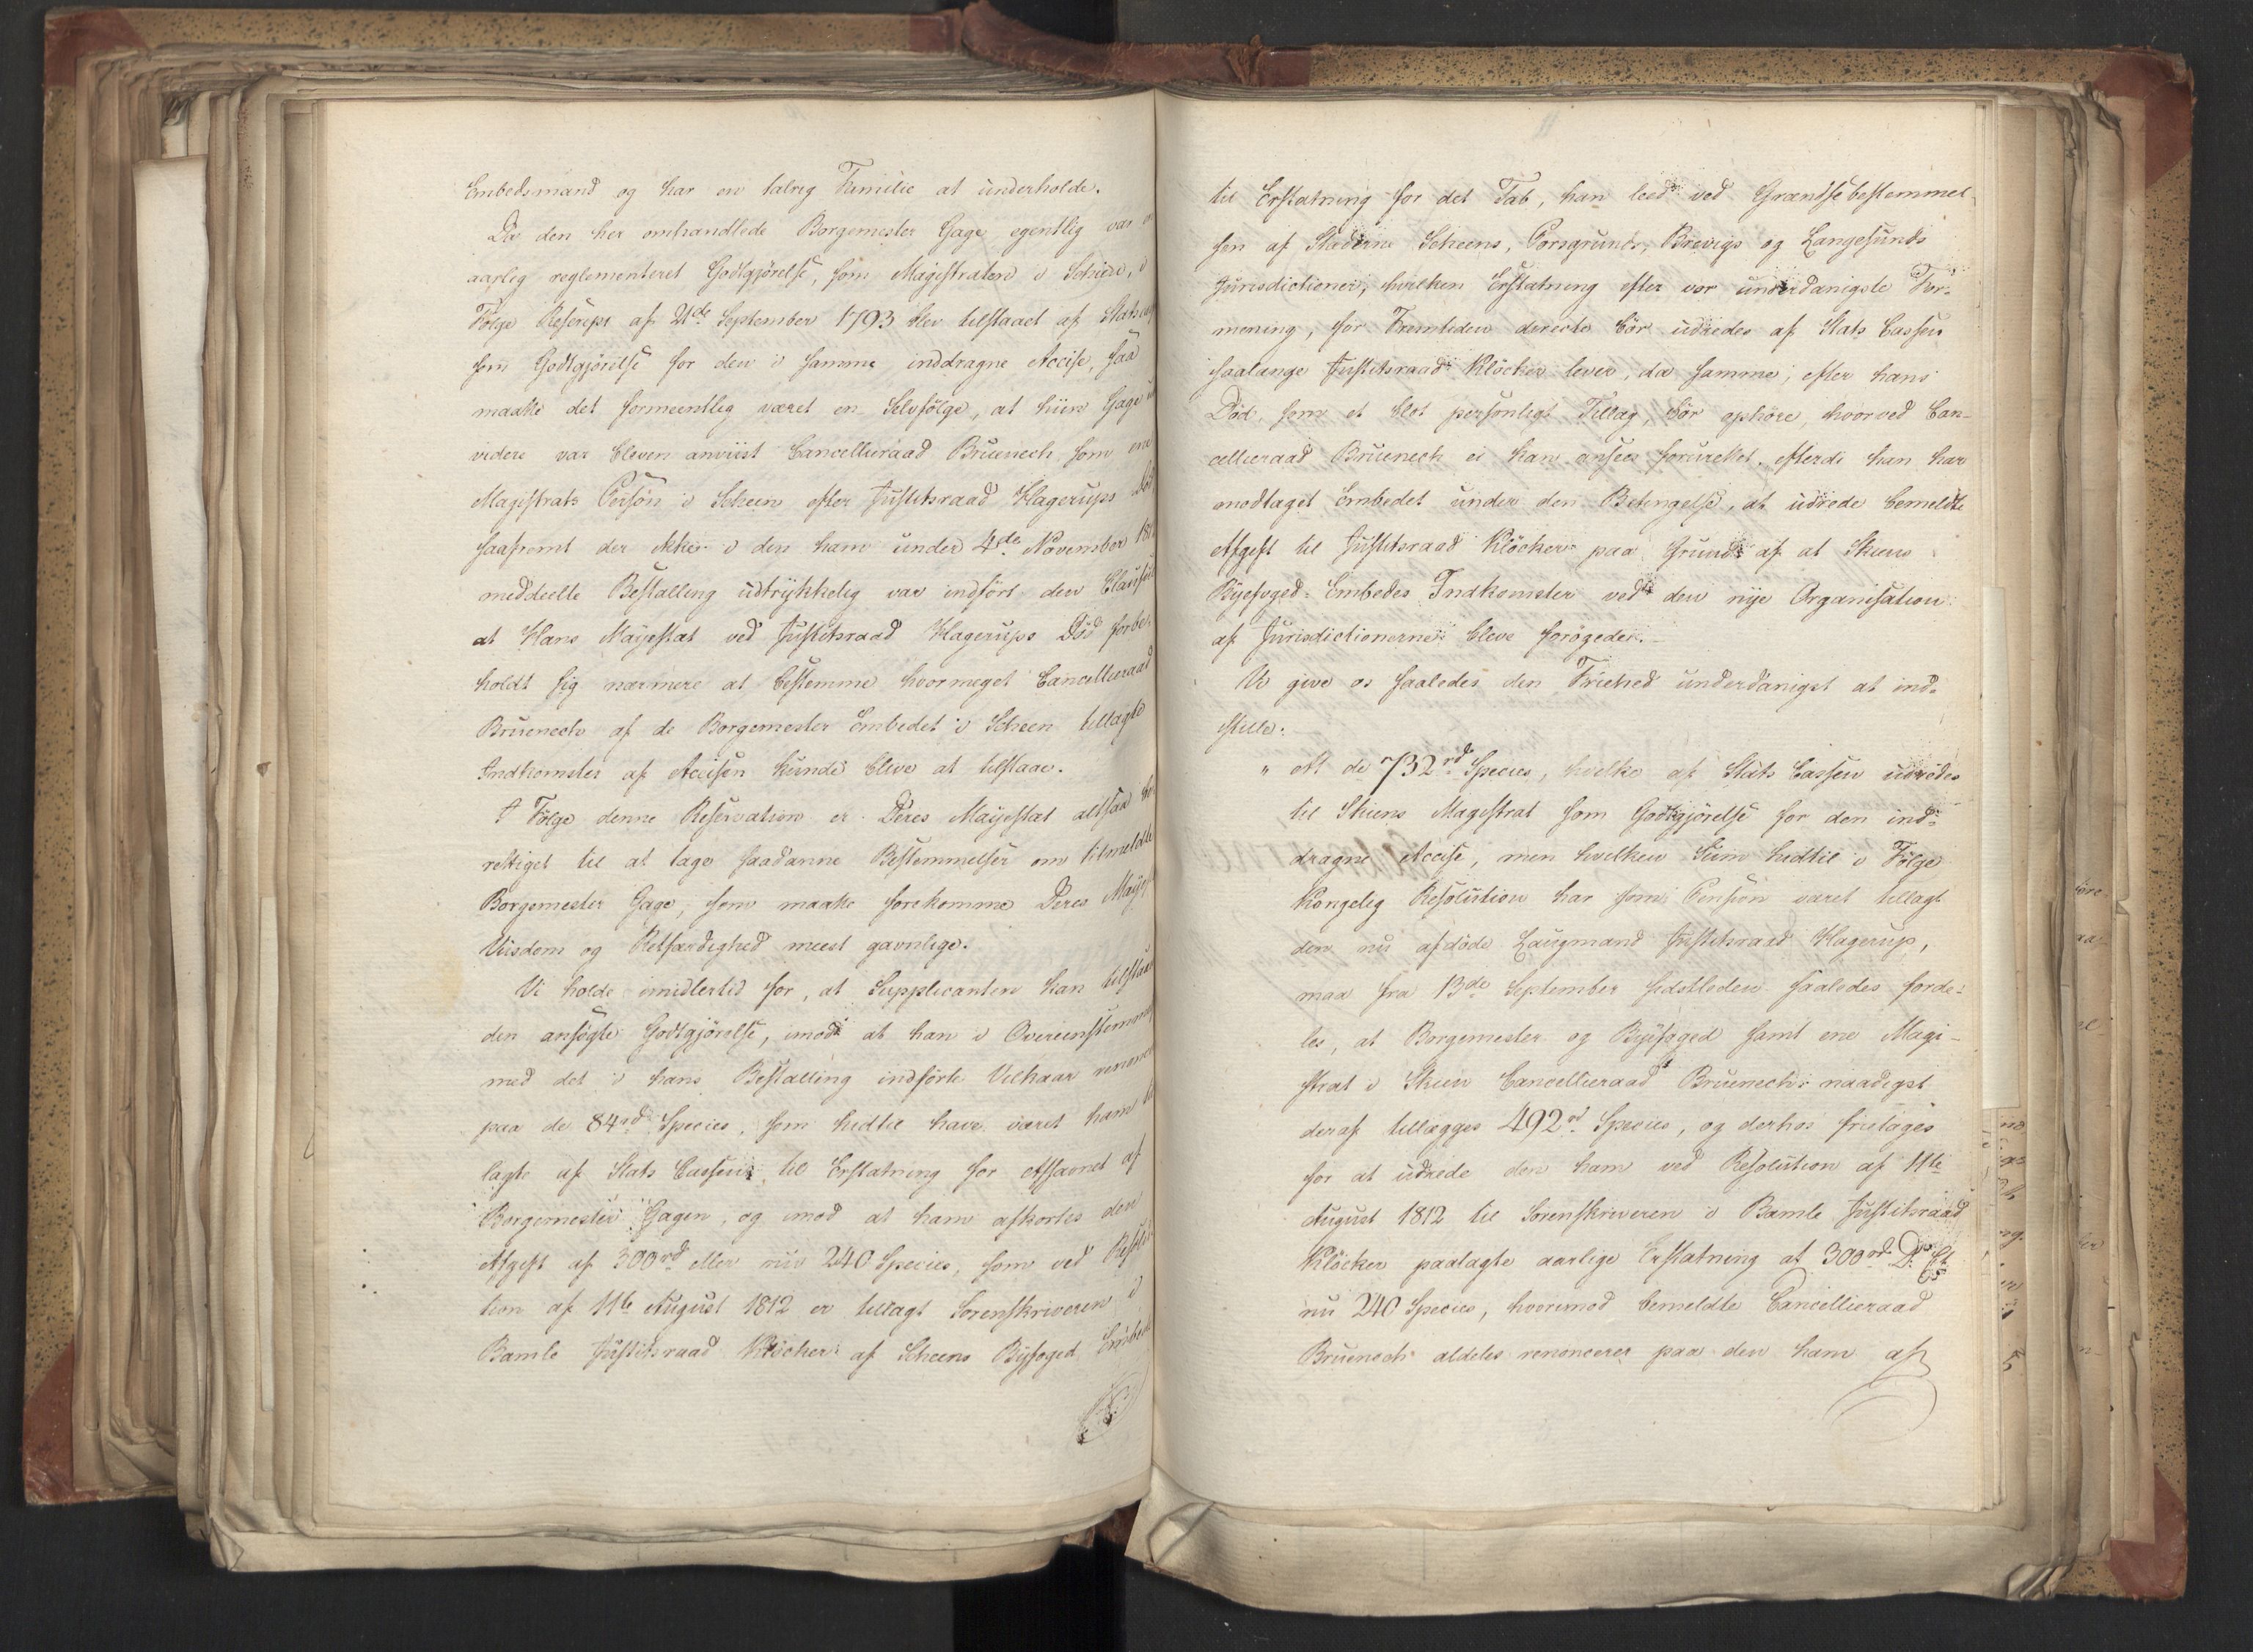 Embedsmand og har en talrig Familie at underholde.
Da den her omhandlede Borgemester Gage egentlig var
aarlig reglementeret Godtgjörelse, som Magistraten i Scheen, i
Fölge Rescript af 21de September 1793 blev tilstaaet af
som Godtgjörelse for den i samme inddragne Accise, saa
maatte det formeentlig været en Selvfölge, at hiin Gage
videre var bleven anviist Cancellieraad Bruenech som
Magistrats Person i Scheen efter Justitsraad Hagerups
saafremt der ikke i den ham under 4de November
meddeelte Bestalling udtrykkelig var indfört den
at Hans Majestæt ved Justitsraad Hagerups Död forbe-
holdt sig nærmere at bestemme hvormeget Cancellieraad
Bruenech af de Borgemester Embedet i Scheen tillagte
Indkomster af Accisen kunde blive at tilstaae.
I Fölge denne Reservation er Deres Majestæt altsaa be-
rettiget til at tage saadanne Bestemmelser om bemeldte
Borgemester Gage, som maatte forekomme Deres
Viisdom og Retfærdighed meest gavnlige.
Vi holde imidlertid for, at Supplicanten kan
den ansögte Godtgjörelse, imod at han i
med det i hans Bestalling indförte Vilkaar
paa de 84rd Species, som hidtil have været ham
lagte af Stats Cassen til Erstatning for Afsavnet af
Borgemester Gagen, og imod at ham afkortes den
Afgift af 300rd eller nu 240 Species, som ved Resolu-
tion af 11te August 1812 er tillagt Sorenskriveren i
Bamle Justitsraad Klöcker af Scheens Byfoged
til Erstatning for det Tab, han leed ved Grændsebestemmel-
sen af Stæderne Scheens, Porsgrunds, Brevigs og Langesunds
Jurisdictioner, hvilken Erstatning efter vor underdanigste For-
mening, for Fremtiden derecte bör udredes af Stats Cassen
saalænge Justitsraad Klöcker lever, da samme, efter hans
Död, som et blot personligt Tillæg, bör ophöre, hvorved Can-
cellieraad Bruenech ei kan ansees forurettet, efterdi han har
modtaget Embedet under den Betingelse, at udrede bemeldte
Afgift til Justitsraad Klöcker paa Grund af at Skiens
Byefoged-Embedes Indkomster ved den nye Organisation
af Jurisdictionerne bleve forögede.
Vi give os saaledes den Friehed underdanigst at ind-
stille:
" at de 732rd Species, hvilke af Stats Cassen udredes
til Skiens Magistrat som Godtgjörelse for den ind-
dragne Accise, men hvilken Sum hidtil i Fölge
Kongelig Resolution har som Pension været tillagt
den nu afdöde Laugmand Justitsraad Hagerup,
maa fra 13de September sidstleden saaledes forde-
les, at Borgemester og Byefoged samt ene Magi-
strat i Skien Cancellieraad Bruenech naadigst
deraf tillægges 492rd Species, og derhos fritages
for at udrede den ham ved Resolution af 11te
August 1812 til Sorenskriveren i Bamle Justitsraad
Klöcker paalagte aarlige Erstatning at 300rd D. Ct
nu 240 Species, hvorimod bemeldte Cancellieraad
Bruenech aldeles renoncerer paa den ham af